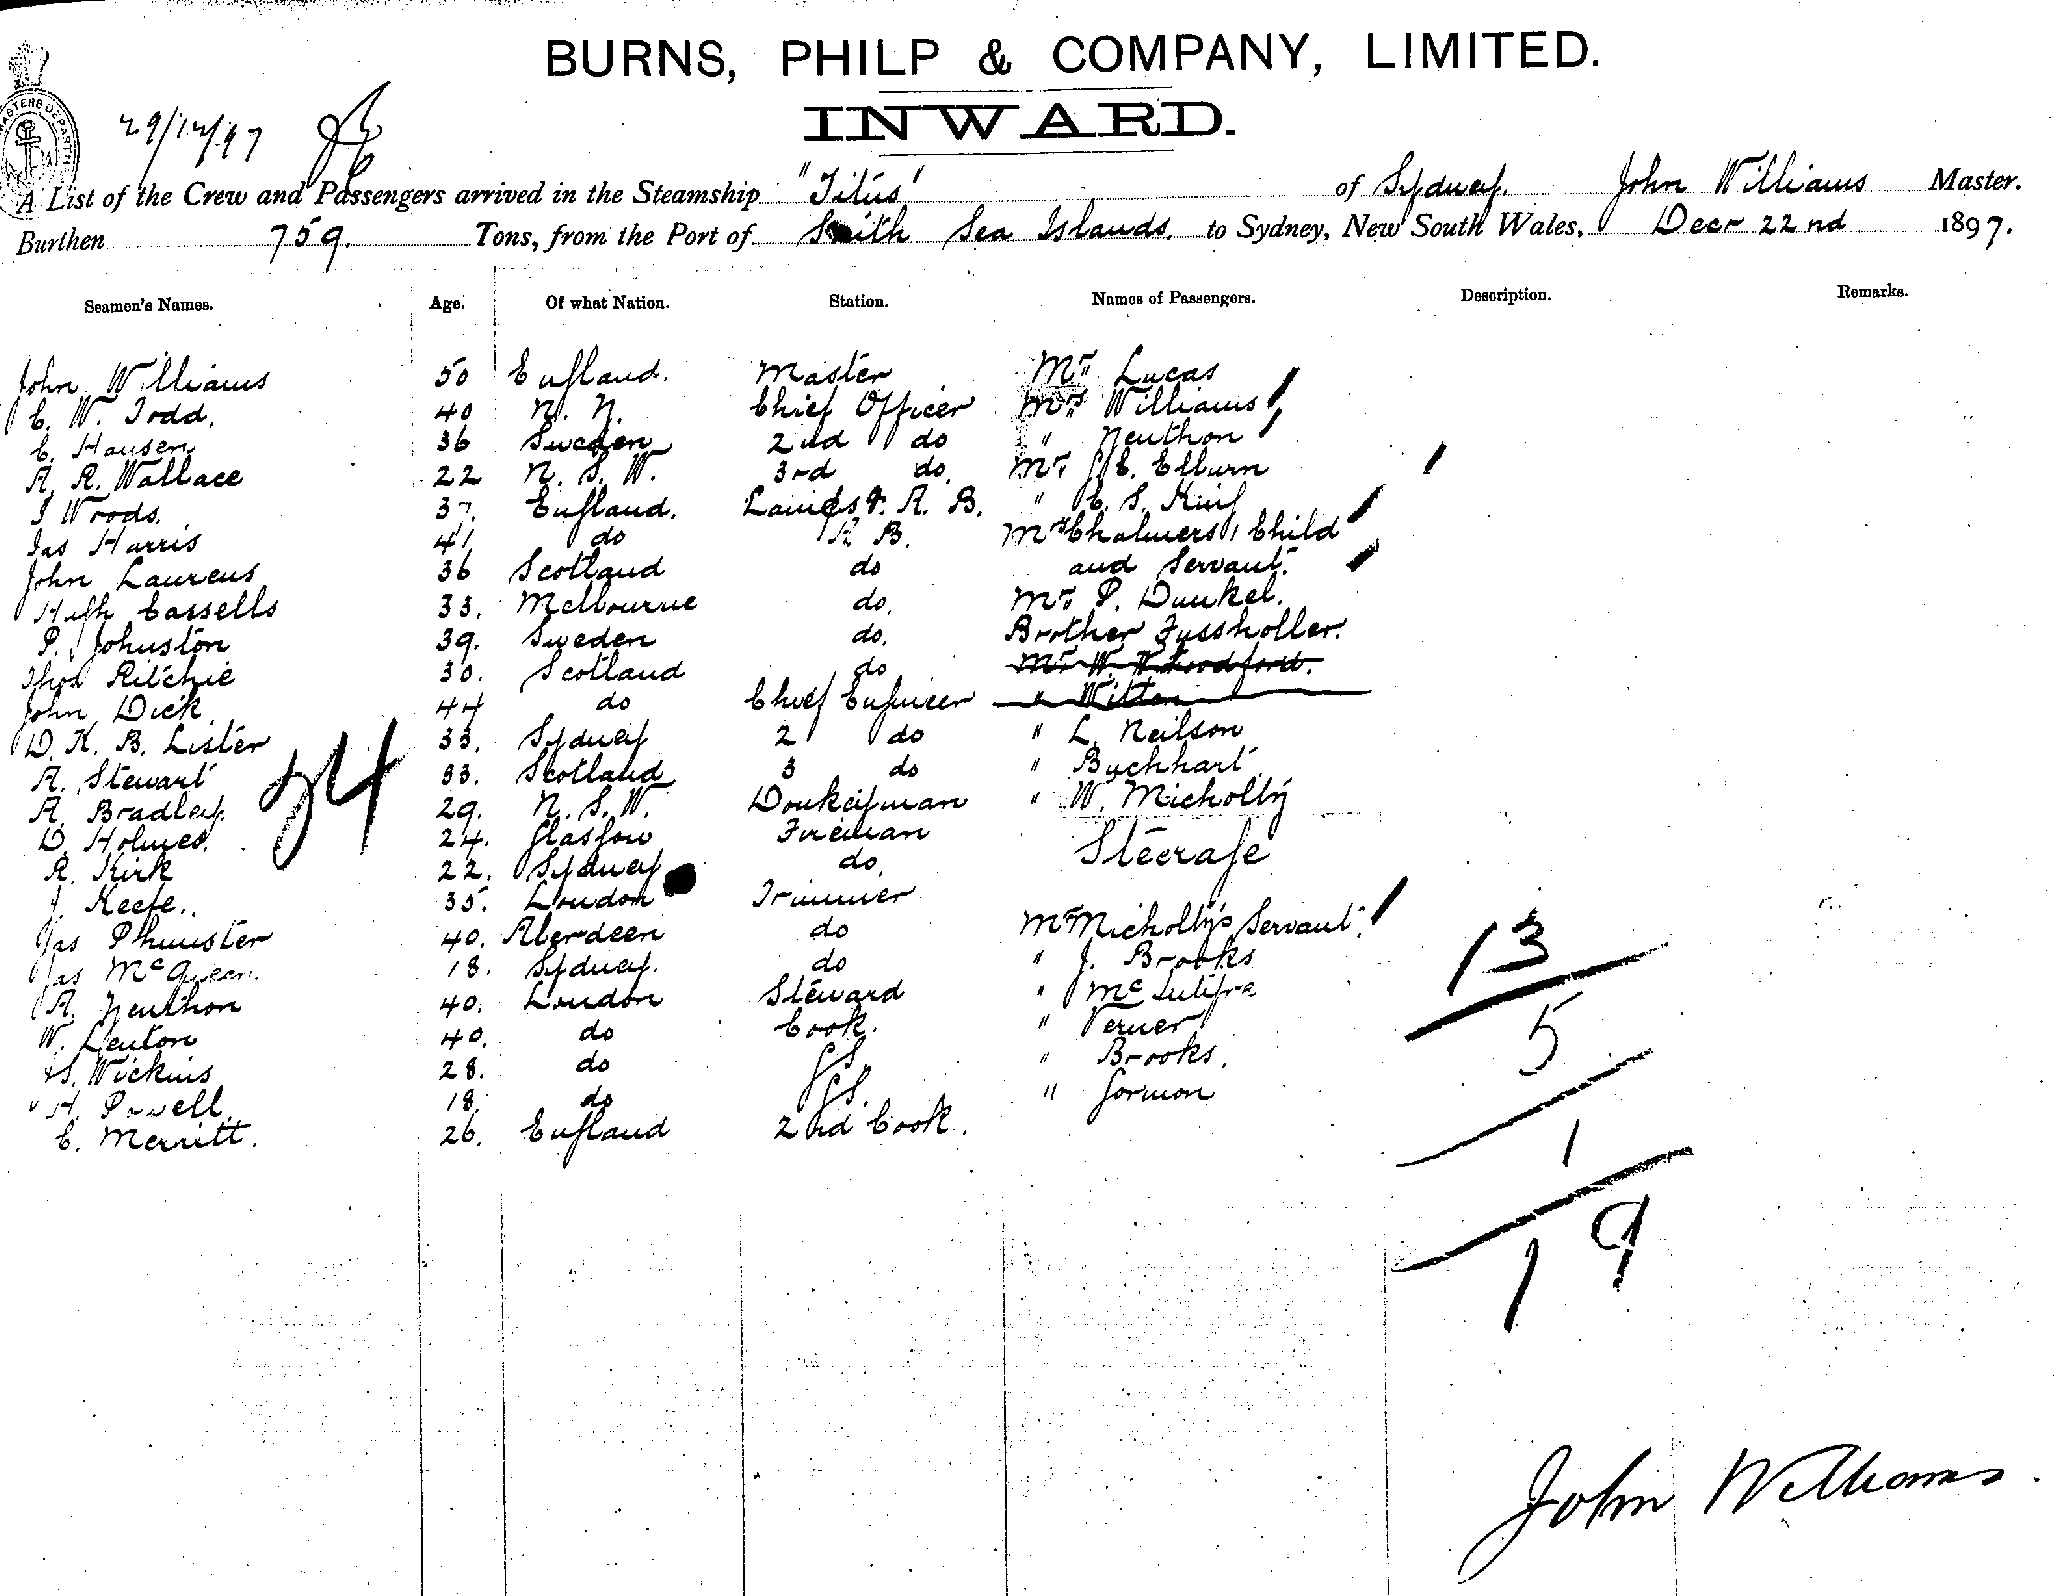 BURNS, PHILP & COMPANY, LIMITED.
INWARD.
29/12/97
A List of the Crew and Passengers arrived in the Steamship "Titus" of Sydney. John Williams Master.
Burthen 759. Tons, from the Port of South Sea Islands. to Sydney, New South Wales, Decr 22nd 1897.
Seamen's Names. Age. Of what Nation. Station. Names of Passengers. Description. Remarks.
John Williams 50 England. Master Mr. Lucas
C. W. Todd. 40 Chief Officer Mrs Williams
C. Hansen 36 Sweden 2nd do " Neuthon
A. R. Wallace 22 N. S. W. 3rd do. Mr. E. Elburn
Woods. 37. England. A. B. " C. S. King
Jas Harris 41 do A B. Mrs Chalmers, Child
John Laurens 36 Scotland do and Servant.
Hugh Cassells 33. Melbourne do. Mr. P. Dunkel.
P. Johnston 39. Sweden do. Brother Fussholler.
Ritchie 30. Scotland do Mr. W. Woodford.
John Dick 44 do Chief Engineer " Wilton
D. K. B. Lister 33. Sydney 2 do " L. Neilson
A. Stewart 33. Scotland 3 do "
A. Bradley. 29. N. S. W. Donkeyman " W. Micholly
D. Holmes. 24. Glasgow Fireman
24
R. Kirk 22. Sydney do. Steerage
J. Keefe. 35. London Trimmer
Jas 40. Aberdeen do Mr Micholly's Servant.
Jas McQueen. 18. Sydney. do " J. Brooks
A. Neuthon 40. London Steward "
W. Lenton 40. do Cook. " Verner
S. Wickins 28. do G S. " Brooks.
H. Powell. 18. do G S. " Gormon
C. Merritt. 26. England 2nd Cook.
13
5
1
19
John Williams.